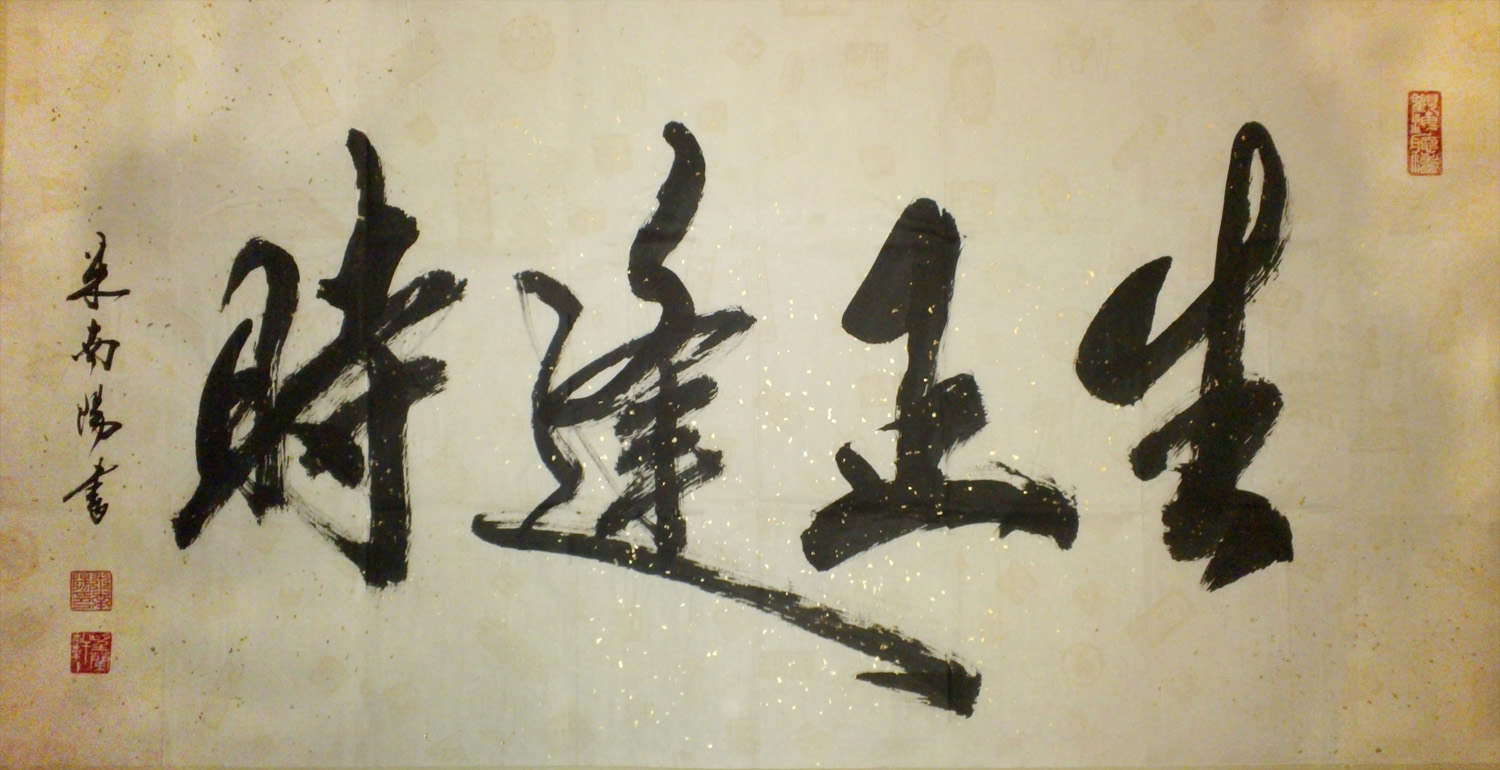 生正逢時
朱南陽書